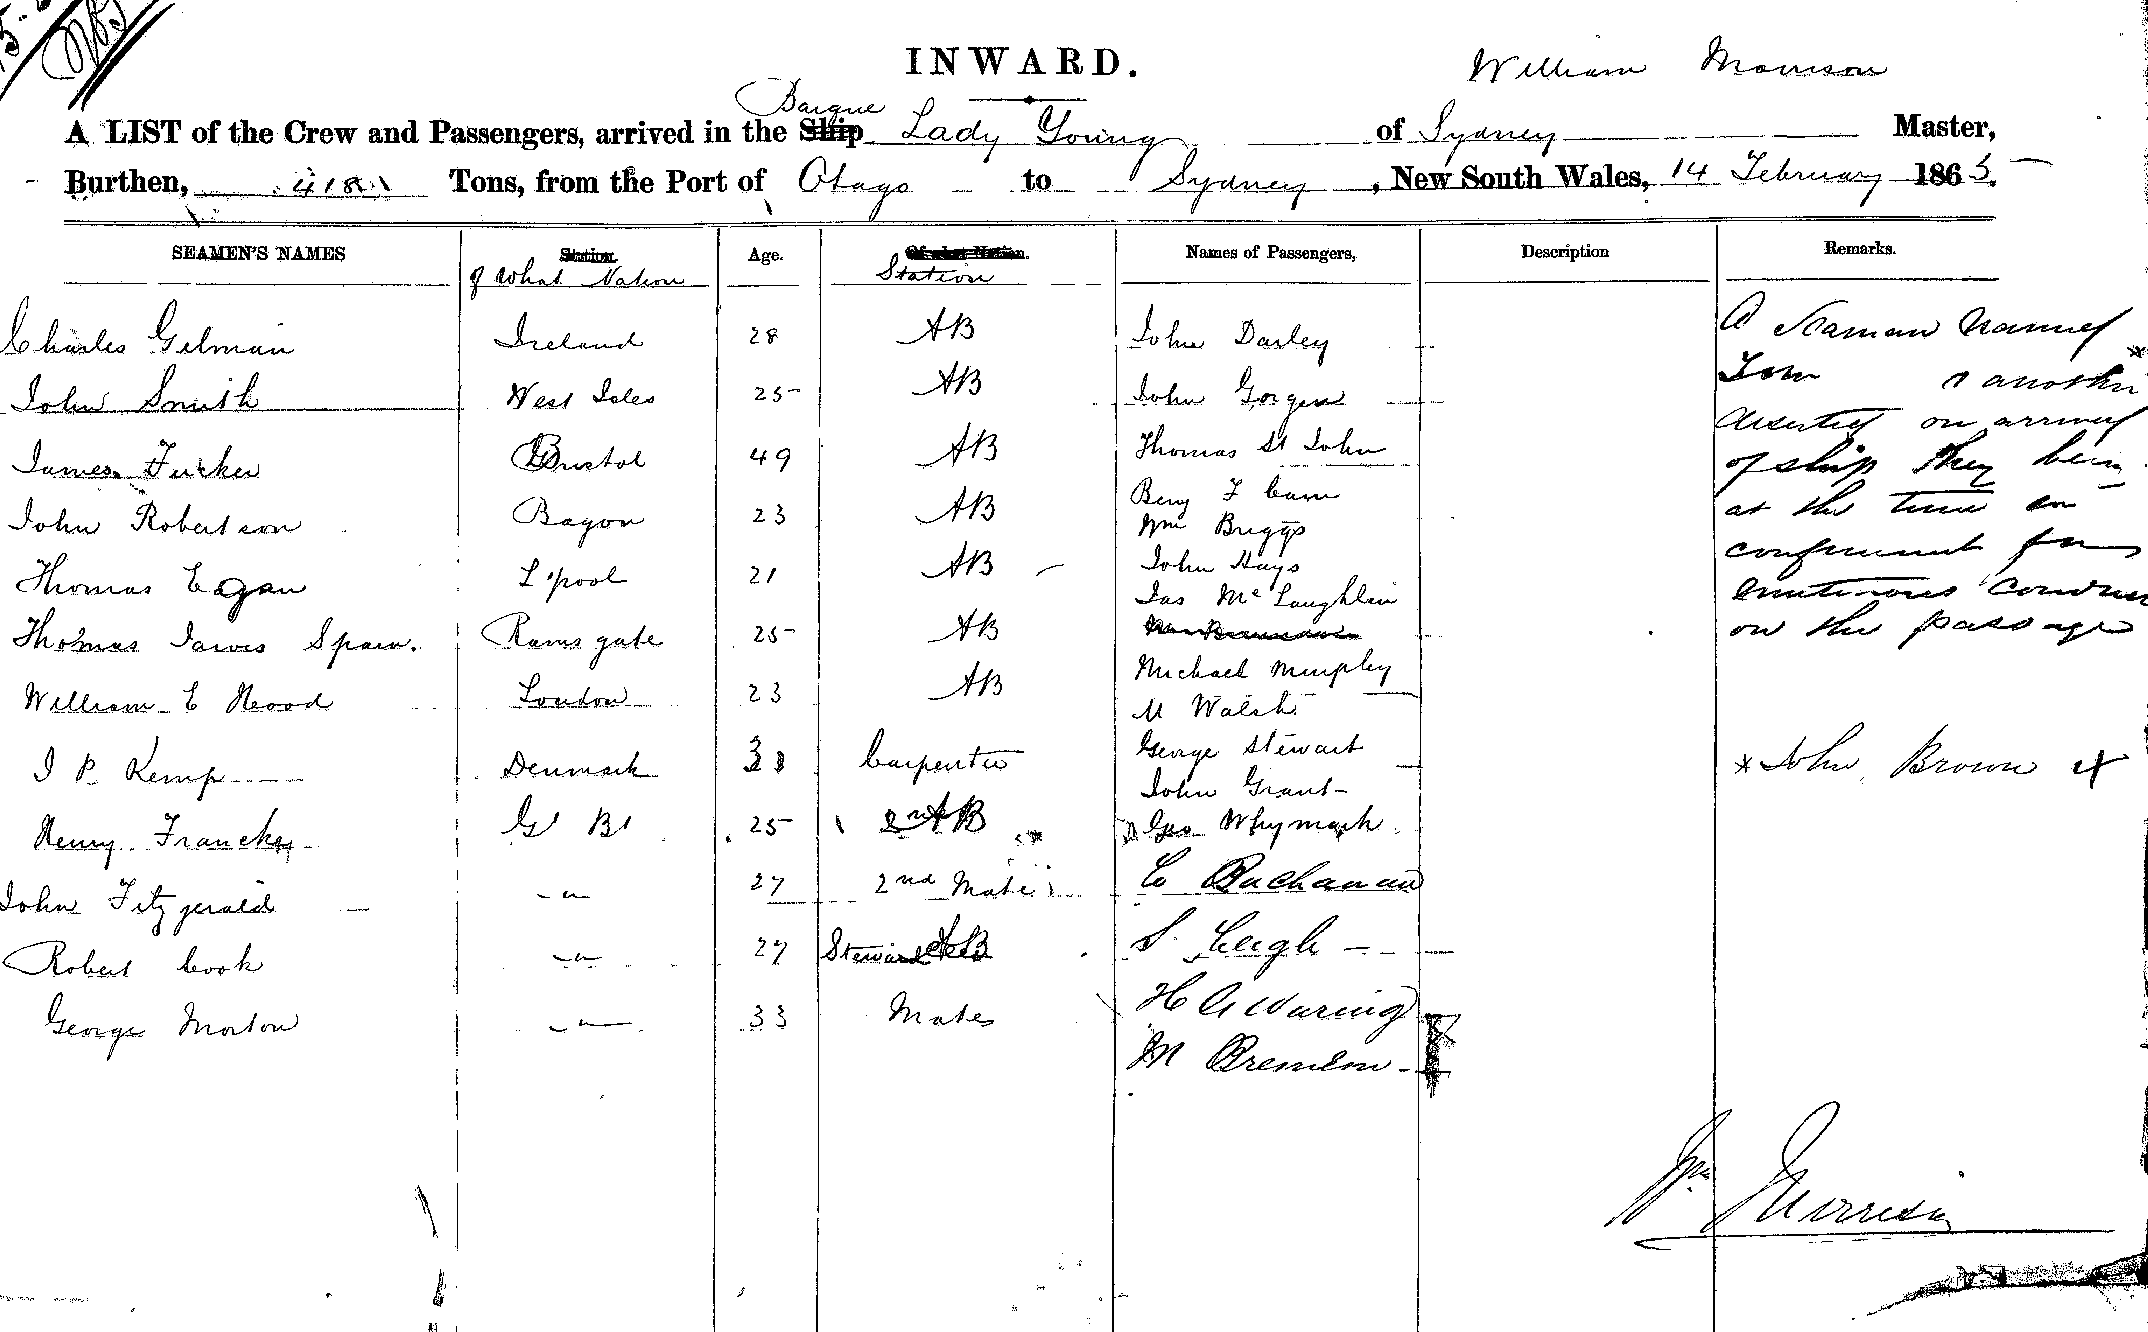 INWARD.
William Morrison
Barque
A LIST of the Crew and Passengers, arrived in the Ship Lady Young of Sydney Master,
Burthen, 418 Tons, from the Port of Otago to Sydney, New South Wales, 14 February 1865.
SEAMEN'S NAMES Station Age. Of what Nation. Names of Passengers, Description Remarks.
of What Nation Station
Charles Gilman Ireland 28 AB John Darley A Seaman named
John Smith West Isles 25 AB John Gorgen Tom & another
deserted on arrival
James Tucker Bristol 49 AB Thomas St John of ship they being
Benj F Cam at the time in
John Robertson Bagon 23 AB Wm Briggs
John Hays confinement for
Thomas Egan L'pool 21 AB Jas McLaughlin mutinous conduct
Thomas James Spain. Ramsgate 25 AB on the passage
Michael Murphy
William E Hood London 23 AB M Walsh
George Stewart
J P Kemp Denmark Carpenter John Grant * John Brown
Henry Francke Gt Bt 25 AB Geo Whymark
John Fitzgerald -"- 27 2nd Mate C Buchanan
Robert Cook -"- 27 Steward S. Leigh
George Morton -"- 33 Mate H A Waring
M
Wm Morrison